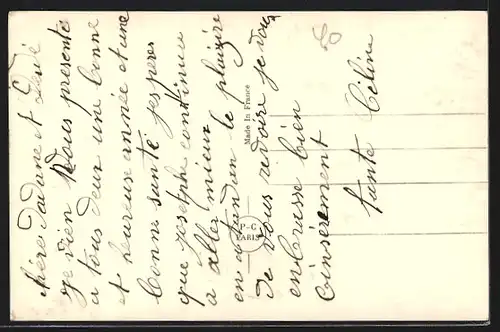 chère Nadane et Dédé
je vien vous présenté
a tous deux une bonne
et heureuse année et une
bonne santé jesperes
que joseph continue
a aller mieux
en atanden le plaizire
de vous revoire je vous
enbrasse bien
Cinsèrement
tante Céline
Made in France
P-C
PARIS